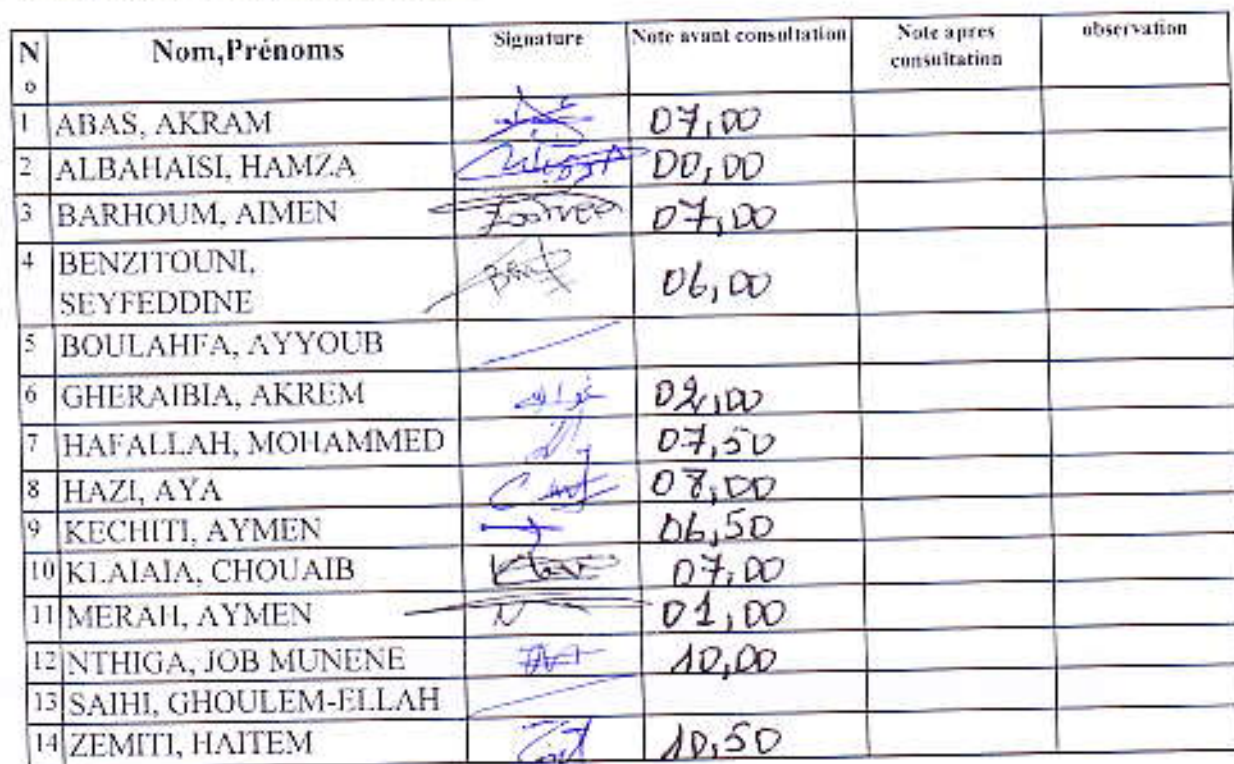 N° Nom,Prénoms Signature Note avant consultation Note apres consultation observation
1 ABAS, AKRAM 07,00
2 ALBAHAISI, HAMZA 00,00
3 BARHOUM, AIMEN 07,00
4 BENZITOUNI, SEYFEDDINE 06,00
5 BOULAHFA, AYYOUB
6 GHERAIBIA, AKREM 02,00
7 HAFALLAH, MOHAMMED 07,50
8 HAZI, AYA 08,00
9 KECHITI, AYMEN 06,50
10 KLAIAIA, CHOUAIB 07,00
11 MERAH, AYMEN 01,00
12 NTHIGA, JOB MUNENE 10,00
13 SAIHI, GHOULEM-ELLAH
14 ZEMITI, HAITEM 10,50